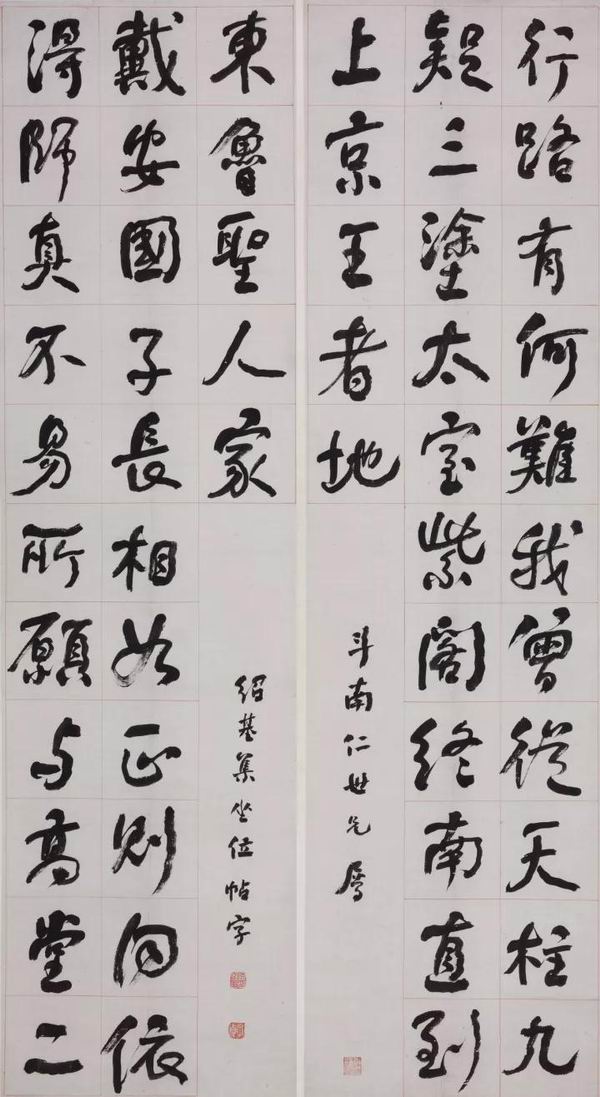 行路有何難我曾從天柱九
疑三塗太室紫閣終南直到
上京王者地
斗南仁世兄属
得師真不易所願与高堂二
戴安國子長相如正則同依
東魯聖人家
紹基集坐位帖字